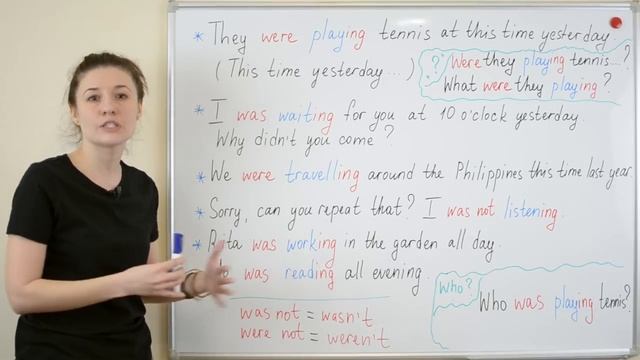 * They were playing tennis at this time yesterday.
(This time yesterday....)
? Were they playing tennis....?
What were they playing?
* I was waiting for you at 10 o'clock yesterday.
Why didn't you come?
* We were travelling around the Philippines this time last year.
* Sorry, can you repeat that? I was not listening.
* Rita was working in the garden all day.
was reading all evening.
was not = wasn't
were not = weren't
Who?
Who was playing tennis?